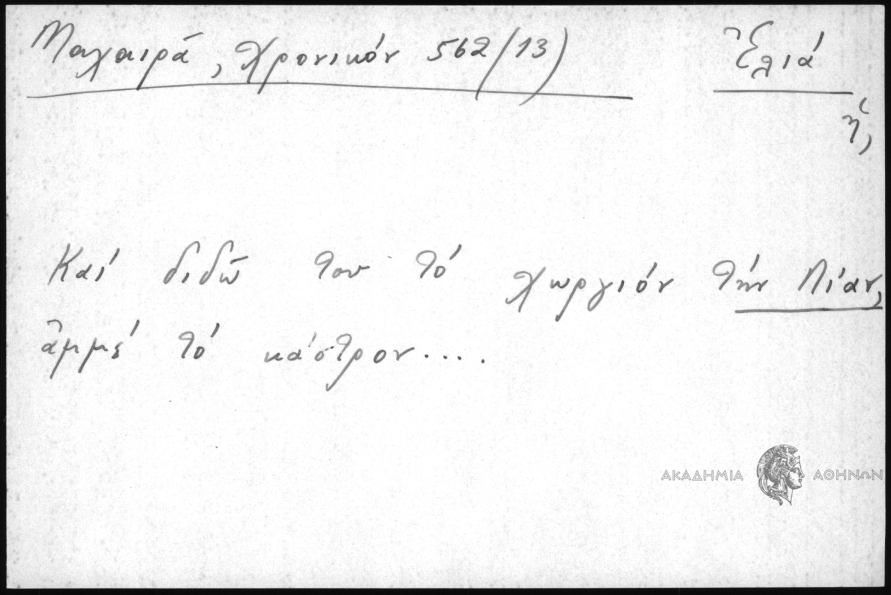 Μαχαιρά, Χρονικόν 562/13)
Ἐλιά
ἡ,
Καί διδῶ του τό χωργιόν τήν Λίαν,
ἀμμέ τό κάστρον....
ΑΚΑΔΗΜΙΑ ΑΘΗΝΩΝ